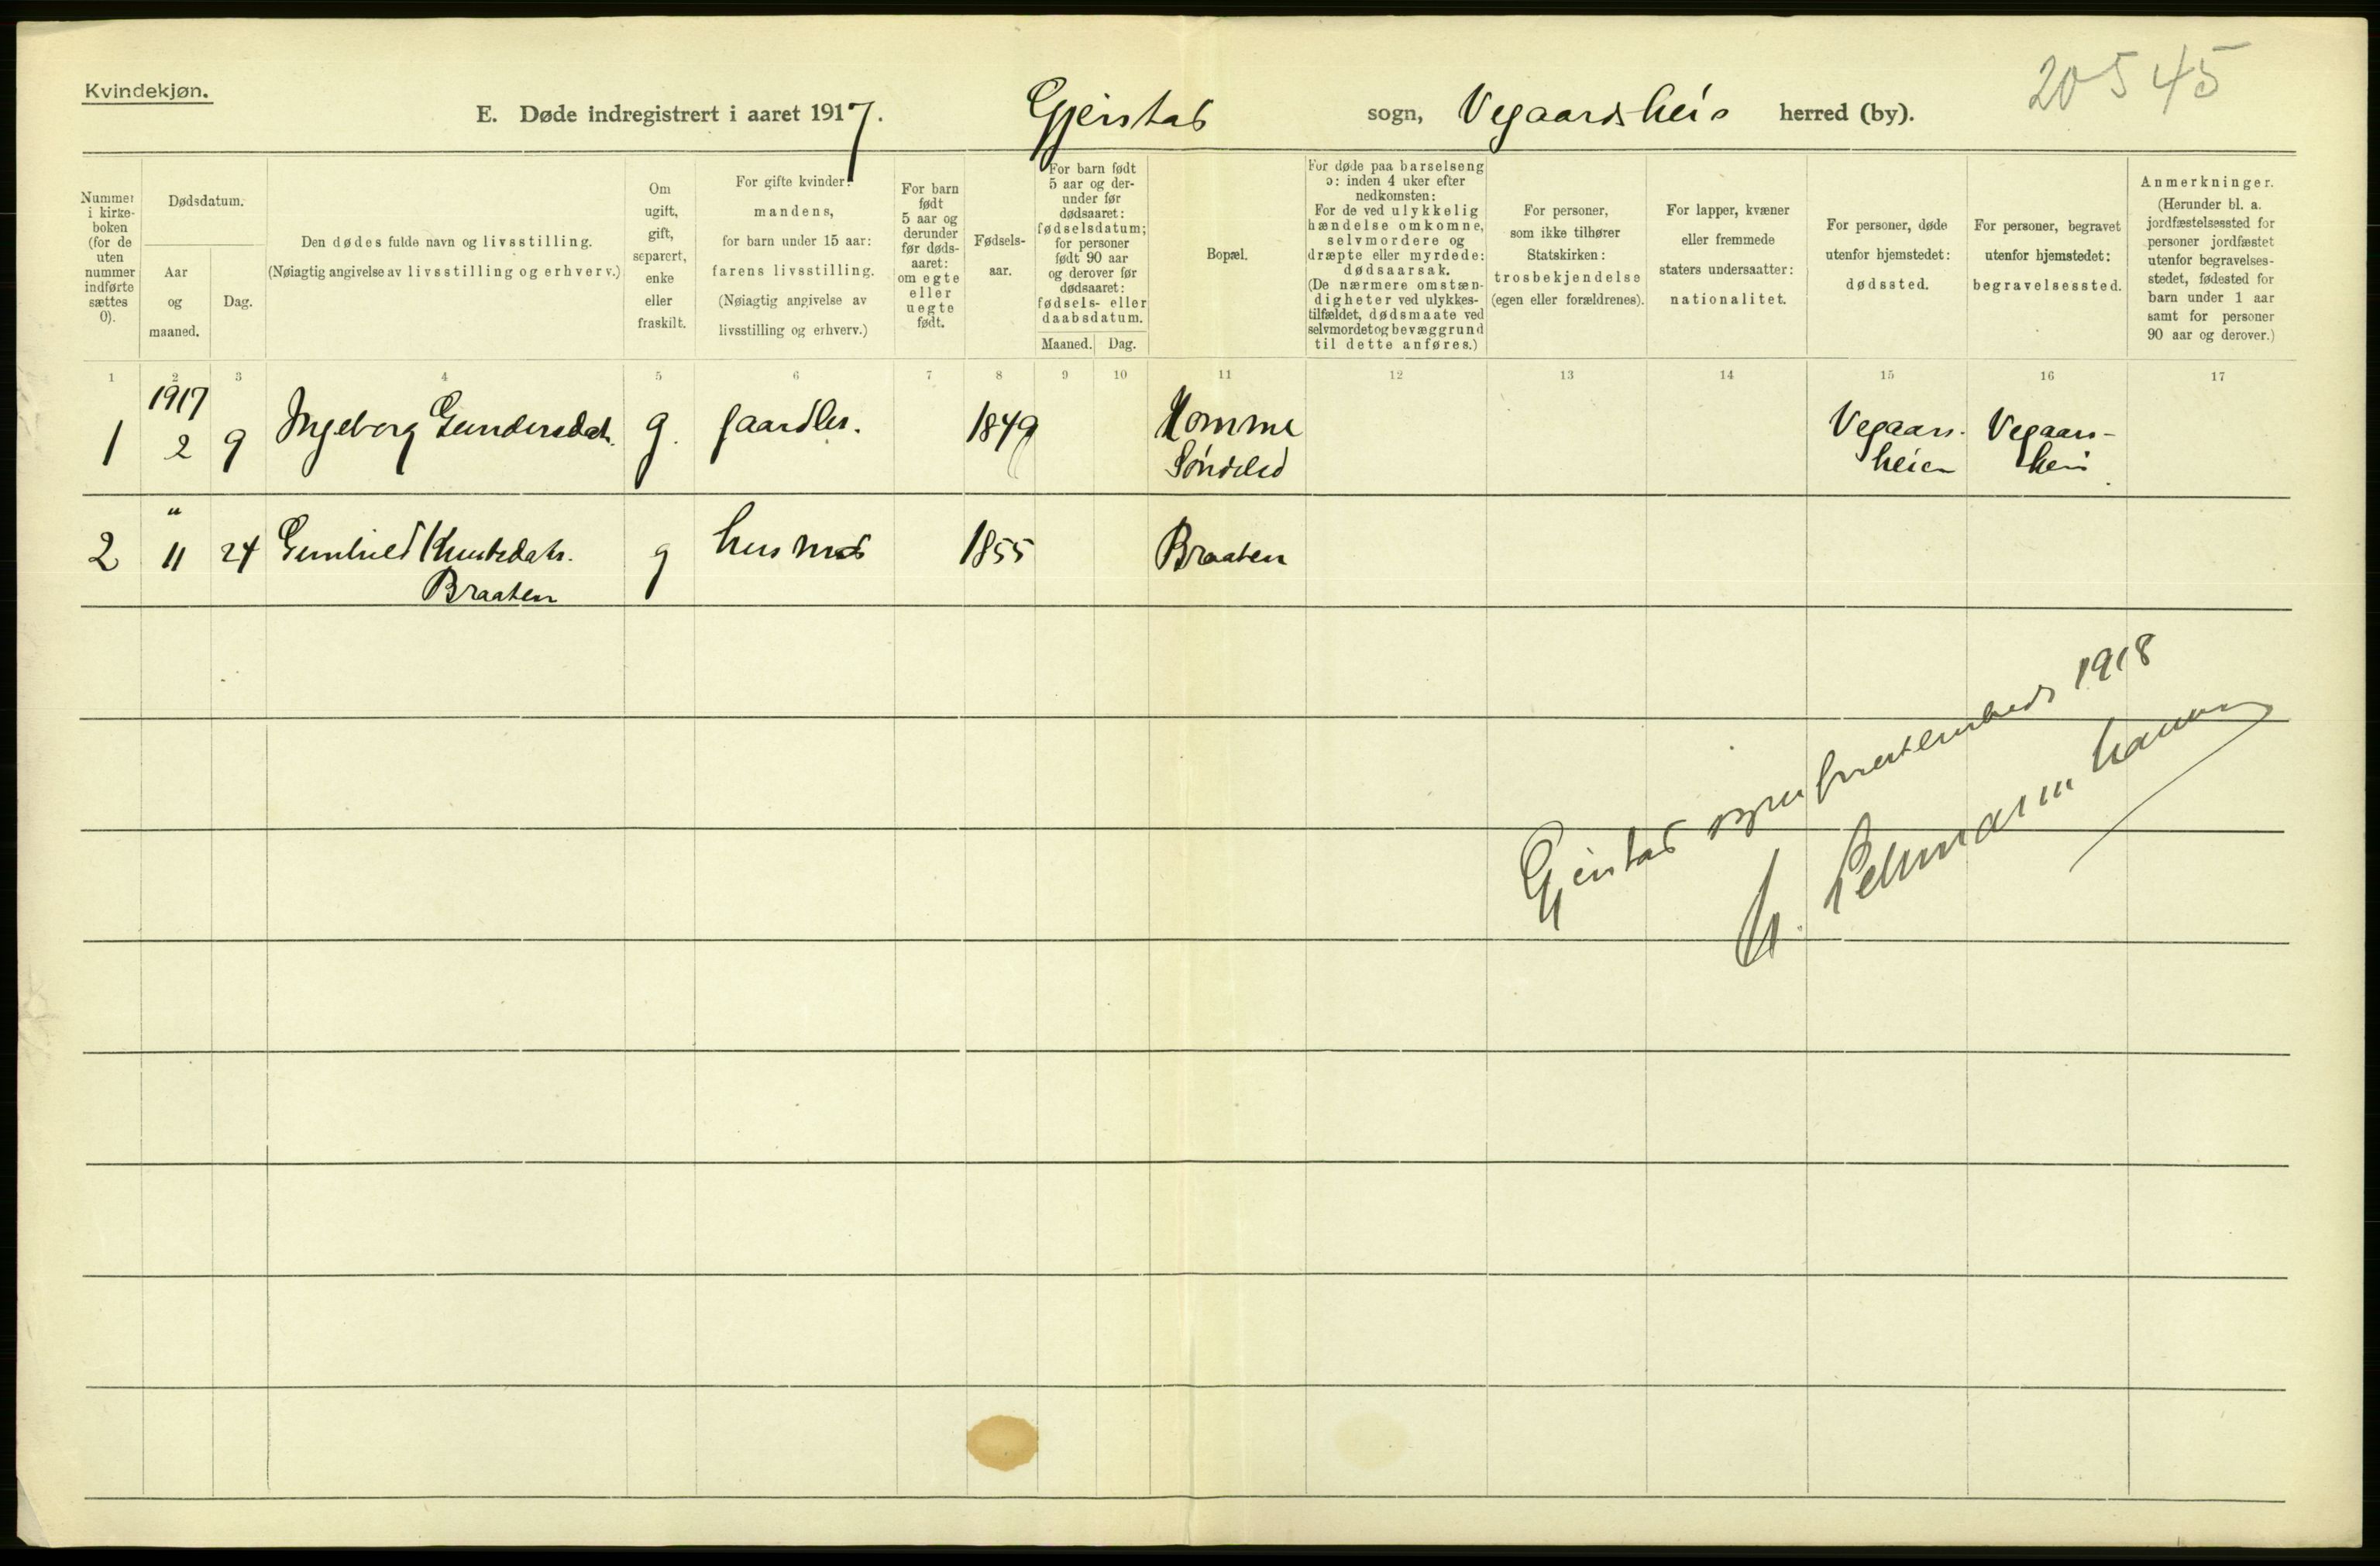 Kvindekjøn.
20545
E. Døde indregistrert i aaret 1917. Gjerstad sogn, Vegaardshei herred (by).
Nummer i kirkeboken (for de uten nummer indførte sættes 0).
Dødsdatum.
Aar og maaned.
Dag.
Den dødes fulde navn og livsstilling.
(Nøiagtig angivelse av livsstilling og erhverv.)
Om ugift, gift, separert, enke eller fraskilt.
For gifte kvinder:
mandens,
for barn under 15 aar:
farens livsstilling.
(Nøiagtig angivelse av
livsstilling og erhverv.)
For barn født 5 aar og derunder før dødsaaret: om egte eller uegte født.
Fødselsaar.
For barn født 5 aar og derunder før dødsaaret: fødselsdatum; for personer født 90 aar og derover før dødsaaret: fødsels- eller daabsdatum.
Maaned. Dag.
Bopæl.
For døde paa barselseng
ɔ: inden 4 uker efter
nedkomsten:
For de ved ulykkelig
hændelse omkomne,
selvmordere og
dræpte eller myrdede:
dødsaarsak.
(De nærmere omstæn-
digheter ved ulykkes-
tilfældet, dødsmaate ved
selvmordet og bevæggrund
til dette anføres.)
For personer,
som ikke tilhører
Statskirken:
trosbekjendelse
(egen eller forældrenes).
For lapper, kvæner
eller fremmede
staters undersaatter:
nationalitet.
For personer, døde
utenfor hjemstedet:
dødssted.
For personer, begravet
utenfor hjemstedet:
begravelsessted.
Anmerkninger.
(Herunder bl. a.
jordfæstelsessted for
personer jordfæstet
utenfor begravelses-
stedet, fødested for
barn under 1 aar
samt for personer
90 aar og derover.)
1 2 3 4 5 6 7 8 9 10 11 12 13 14 15 16 17
1917
1 2 9 Ingeborg Gundersdatr. g. gaardbr. 1849 Homme Vegaars- Vegaars-
Søndeled heien hei
"
2 11 24 Gunhild Knutsdatr. g husmd 1855 Braaten
Braaten
Gjerstad sogneprestembede 1918
Lehmann